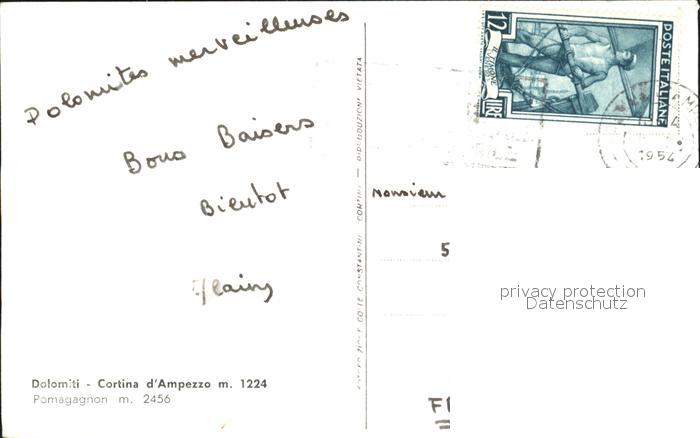 Dolomites merveilleuses
Bons Baisers
Bientot
Dolomiti - Cortina d'Ampezzo m. 1224
Pomagagnon m. 2456
12
LIRE
IL TIMONE
POSTE ITALIANE
1954
Monsieur
5
privacy protection
Datenschutz